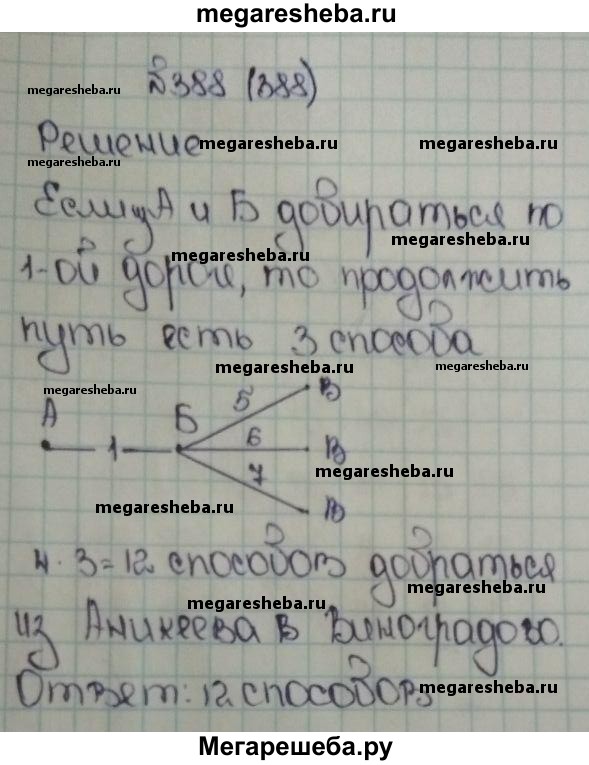 megaresheba.ru
№388 (388)
megaresheba.ru
Решение
megaresheba.ru
megaresheba.ru
megaresheba.ru
Если А и Б добираться по
megaresheba.ru
megaresheba.ru
1-ой дороге, то продолжить
путь есть 3 способа
megaresheba.ru
megaresheba.ru
megaresheba.ru
А 1 Б 5 В
6 В
7 В
megaresheba.ru
megaresheba.ru
4·3=12 способов добраться
megaresheba.ru
megaresheba.ru
из Аникеева в Виноградово.
Ответ: 12 способов
megaresheba.ru
Мегарешеба.ру